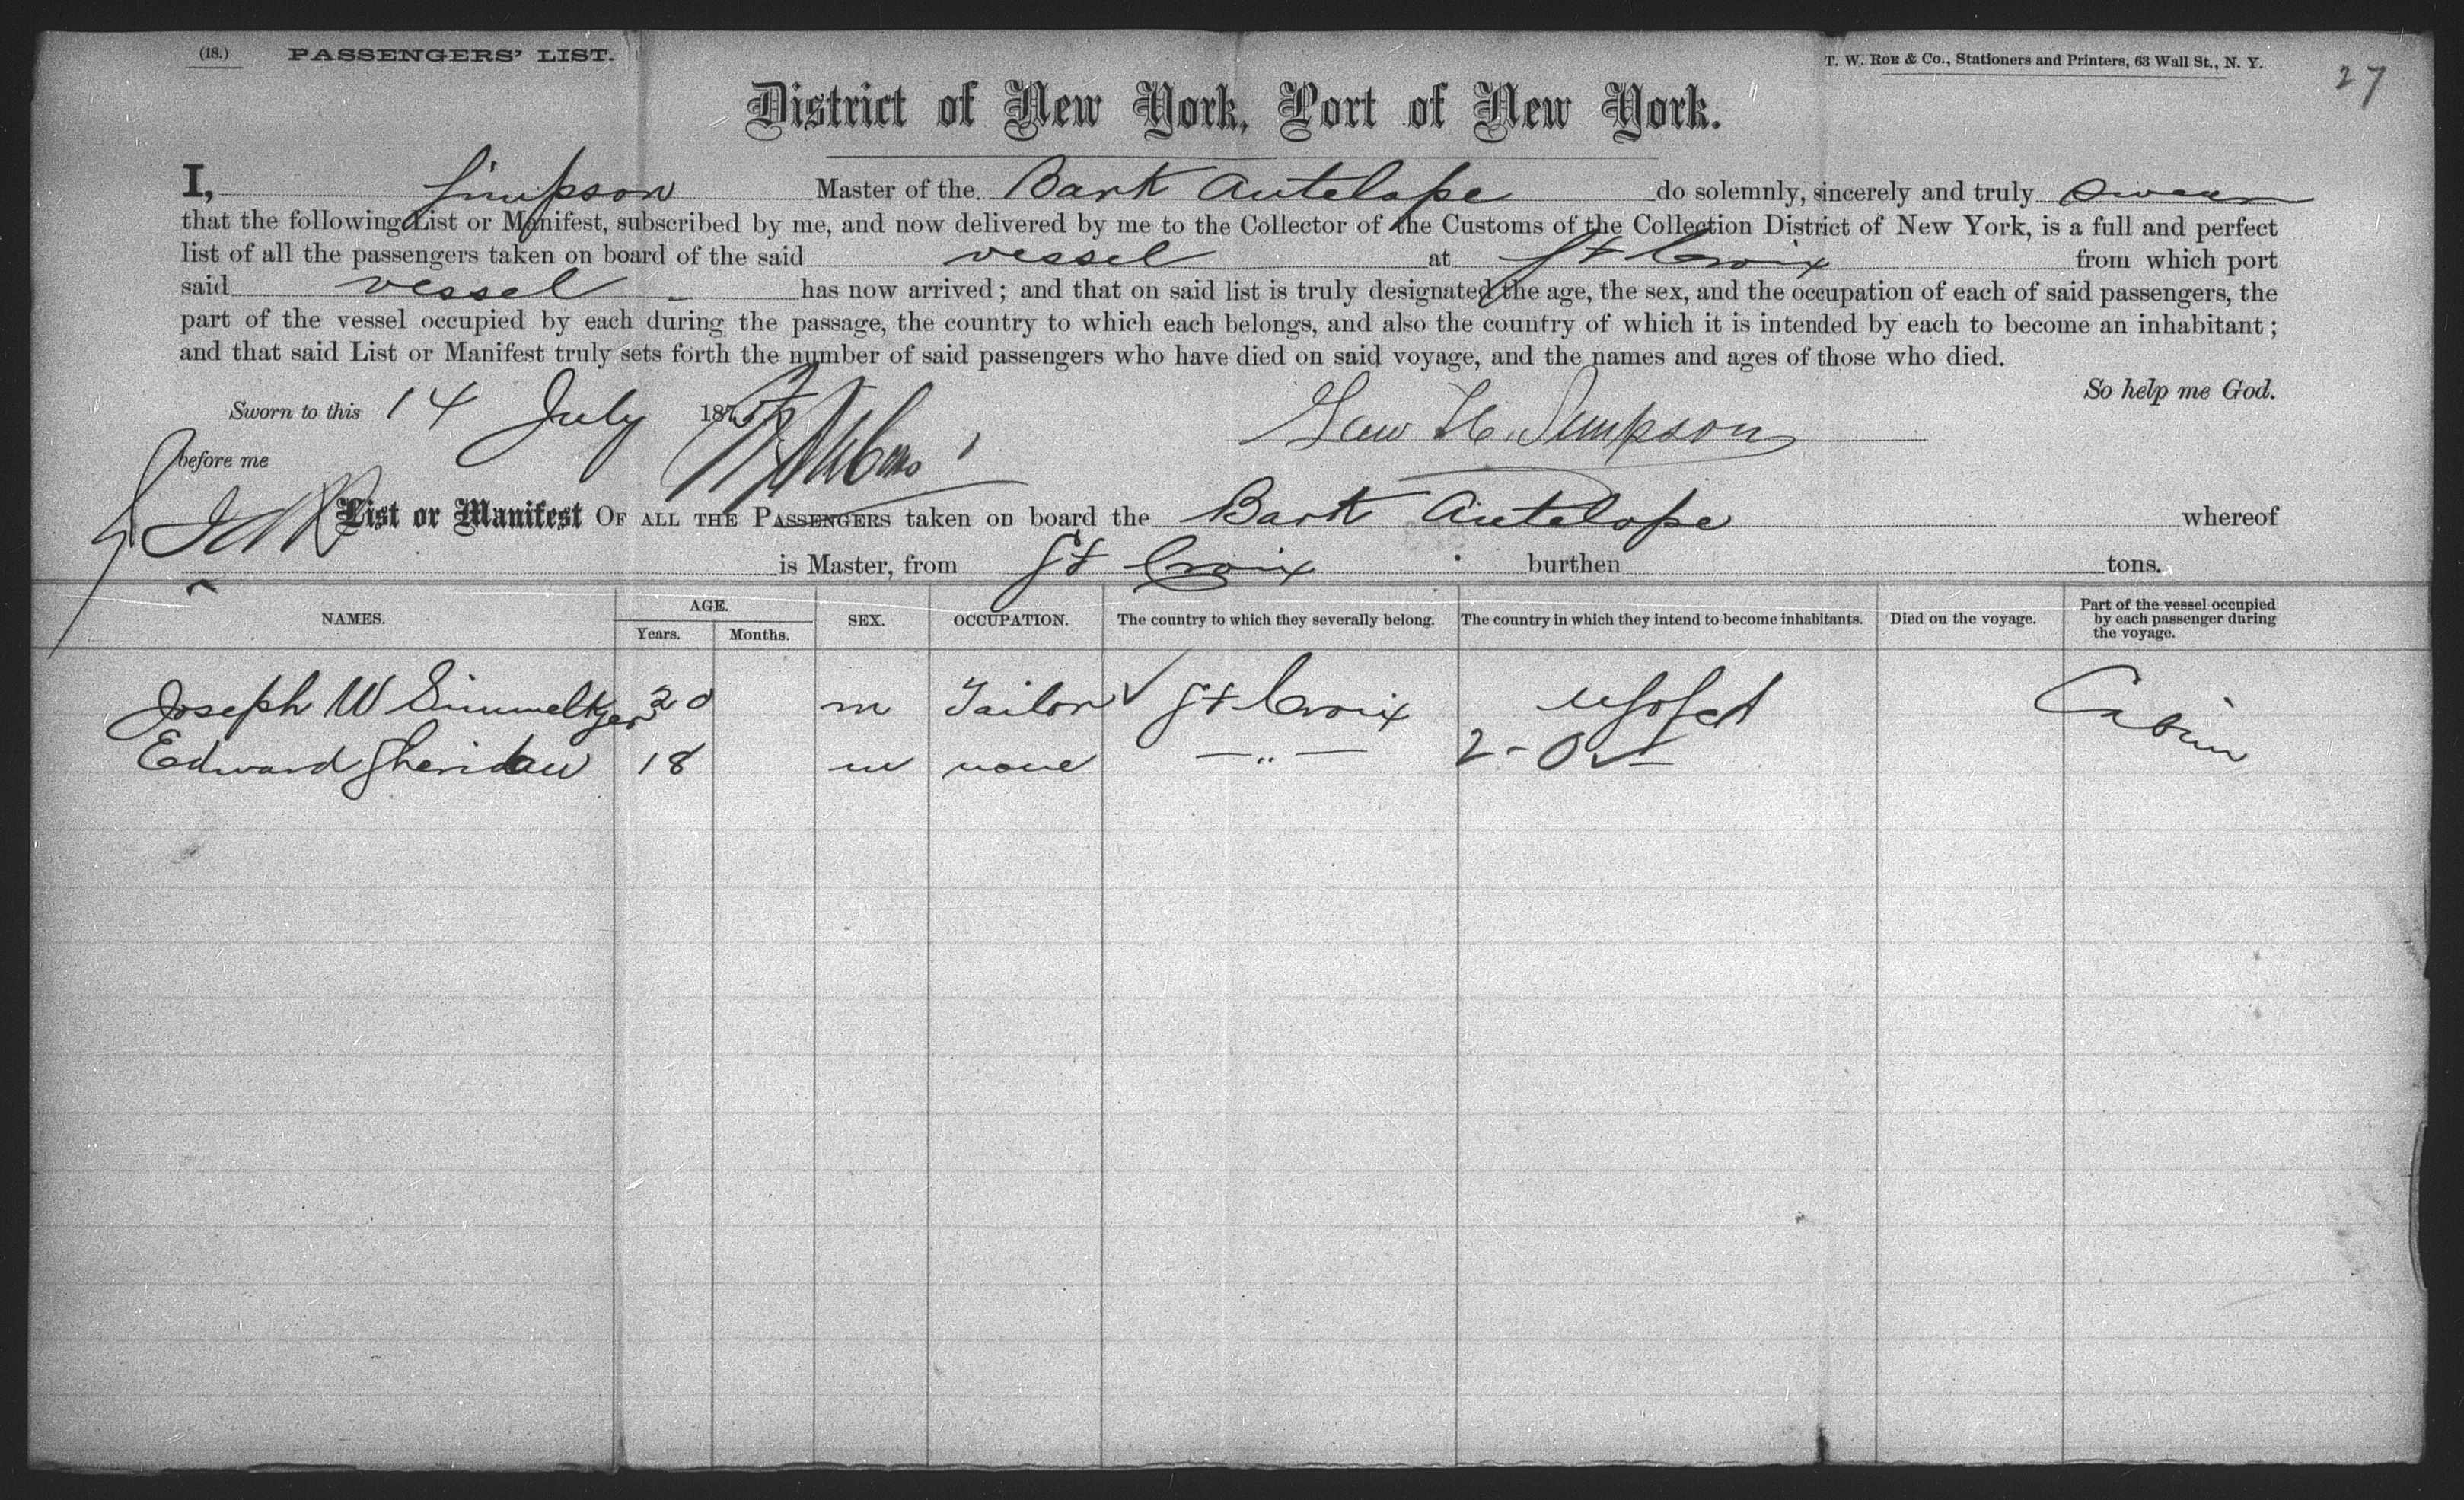 (18.) PASSENGERS' LIST. T. W. Roe & Co., Stationers and Printers, 63 Wall St., N. Y. 27
District of New York, Port of New York.
I, Simpson Master of the Bark Antelope do solemnly, sincerely and truly swear
that the following List or Manifest, subscribed by me, and now delivered by me to the Collector of the Customs of the Collection District of New York, is a full and perfect
list of all the passengers taken on board of the said vessel at St Croix from which port
said vessel has now arrived; and that on said list is truly designated the age, the sex, and the occupation of each of said passengers, the
part of the vessel occupied by each during the passage, the country to which each belongs, and also the country of which it is intended by each to become an inhabitant;
and that said List or Manifest truly sets forth the number of said passengers who have died on said voyage, and the names and ages of those who died.
So help me God.
Sworn to this 14 July 187 H. Simpson
before me
List or Manifest OF ALL THE PASSENGERS taken on board the Bark Antelope whereof
is Master, from St Croix burthen tons.
NAMES. AGE. Years. Months. SEX. OCCUPATION. The country to which they severally belong. The country in which they intend to become inhabitants. Died on the voyage. Part of the vessel occupied by each passenger during the voyage.
Joseph W 20 m Tailor St Croix Cabin
Edward Sheridan 18 m none — " —